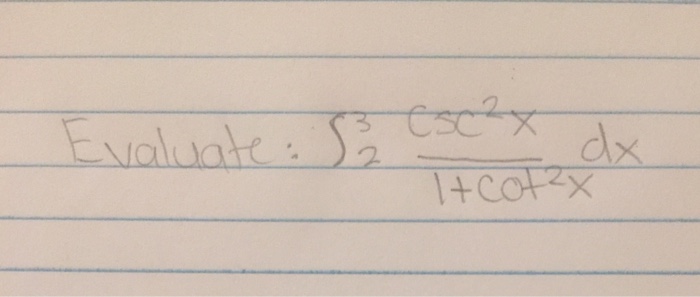 Evaluate: ∫₂³ csc²x / 1+cot²x dx